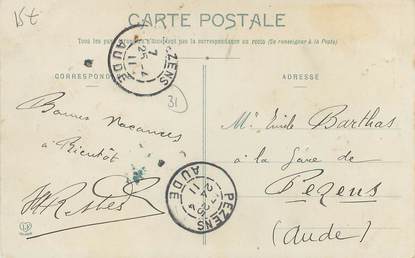 15 €
CARTE POSTALE
Tous les pays étrangers n'acceptent pas la correspondance au recto (Se renseigner à la Poste)
CORRESPONDANCE
ADRESSE
PEZENS
AUDE
7
25 -4
11
31
Bonnes vacances
à Bientôt
Mr Emile Barthas
à la Gare de
Pezens
(Aude)
PEZENS
AUDE
11